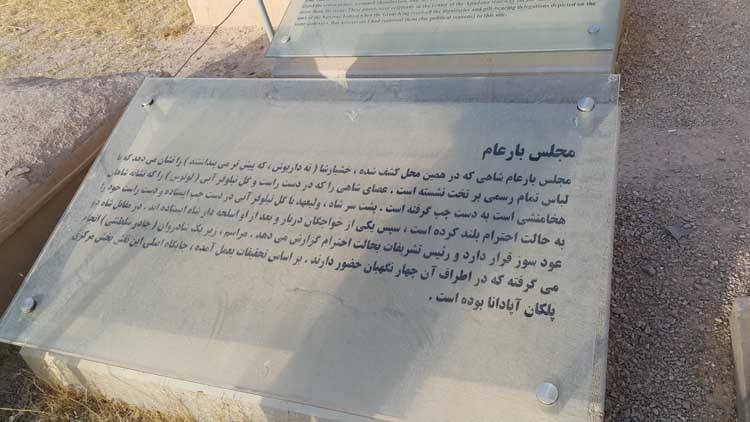 more than 30 years. These pieces were originally at the center of the Apadana stairway
part of the National festival when the Great King received the dignitaries and gift-bearing delegations depicted on the
(for political reasons) to this site.
مجلس بارعام
مجلس بارعام شاهی که در همین محل کشف شده ، خشیارشا ( نه داریوش ، که پیش تر می پنداشتند ) را نشان می دهد که با
لباس تمام رسمی بر تخت نشسته است . عصای شاهی را که در دست راست و گل نیلوفر آبی ( لوتوس ) را که نشانه شاهان
هخامنشی است به دست چپ گرفته است . پشت سر شاه ، ولیعهد با گل نیلوفر آبی در دست چپ ایستاده و دست راست خود را
به حالت احترام بلند کرده است ، سپس یکی از خواجگان دربار و بعد از او اسلحه دار شاه ایستاده اند . در مقابل شاه دو
عود سوز قرار دارد و رئیس تشریفات بحالت احترام گزارش می دهد . مراسم ، زیر یک شادروان ( چادر سلطنتی ) انجام
می گرفته که در اطراف آن چهار نگهبان حضور دارند . بر اساس تحقیقات بعمل آمده ، جایگاه اصلی این نقش بخش مرکزی
پلکان آپادانا بوده است .